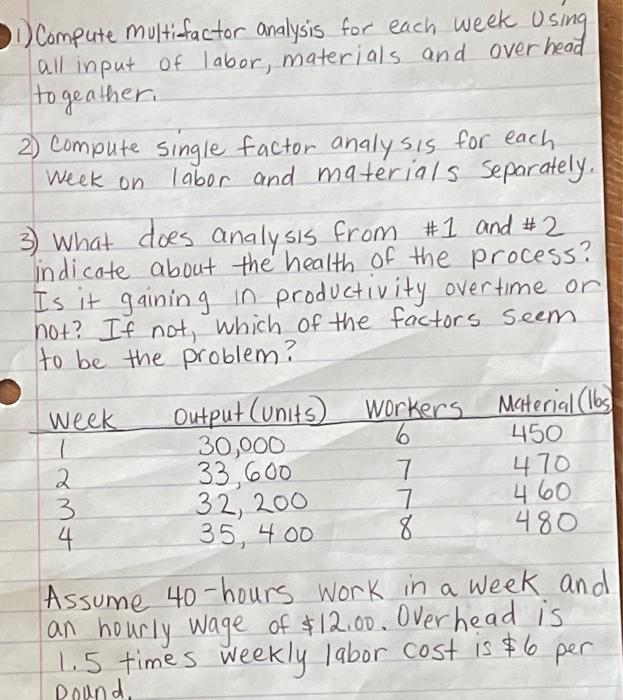 1) Compute multifactor analysis for each week Using
all input of labor, materials and overhead
togeather.
2) Compute single factor analysis for each
week on labor and materials separately.
3) What does analysis from #1 and #2
indicate about the health of the process?
Is it gaining in productivity overtime or
not? If not, which of the factors seem
to be the problem?
Week Output (units) Workers Material (lbs)
1 30,000 6 450
2 33,600 7 470
3 32,200 7 460
4 35,400 8 480
Assume 40-hours work in a week and
an hourly wage of $12.00. Overhead is
1.5 times weekly labor cost is $6 per
pound.